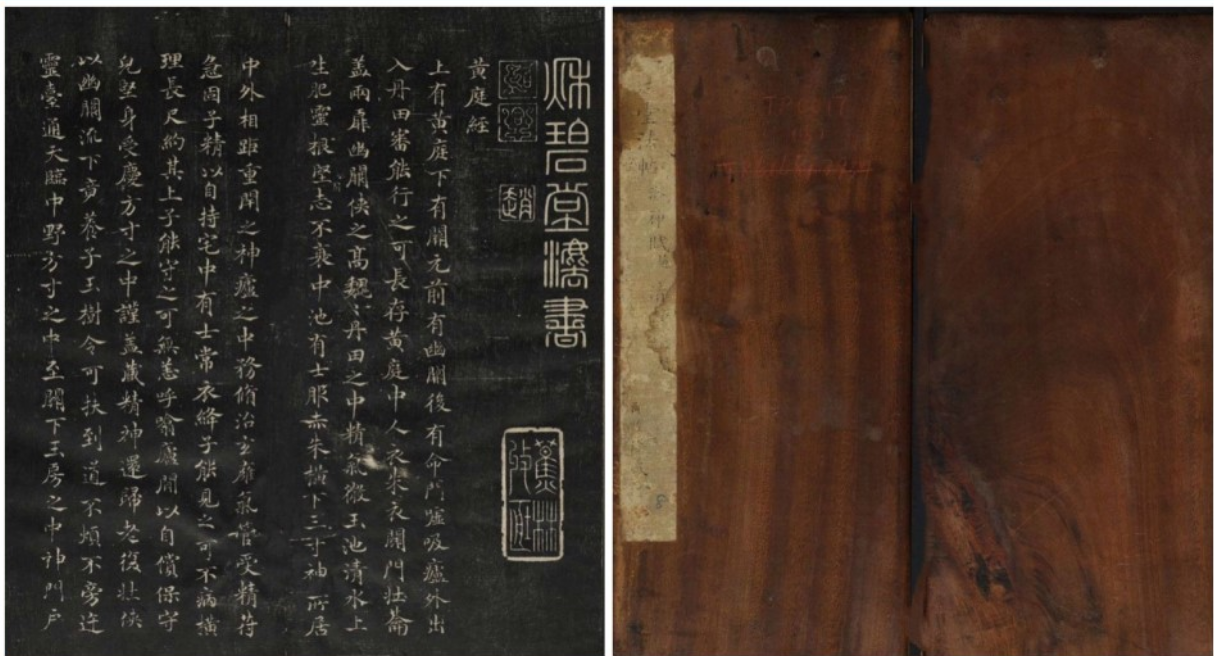 秌碧堂灋書
趙
蕉林
黃庭經
上有黃庭下有關元前有幽關後有命門噓吸廬外出
入丹田審能行之可長存黃庭中人衣朱衣關門壯籥
蓋兩扉幽關俠之高魏〻丹田之中精氣微玉池清水上
生肥靈根堅志不衰中池有士服赤朱橫下三寸神所居
中外相距重閉之神廬之中務脩治玄膺氣管受精符
急固子精以自持宅中有士常衣絳子能見之可不病橫
理長尺約其上子能守之可無恙呼噏廬間以自償保守
兒堅身受慶方寸之中謹蓋藏精神還歸老復壯俠
以幽關流下竟養子玉樹令可扶到道不煩不旁迕
靈臺通天臨中野方寸之中至關下玉房之中神門戶
堂法帖 神賦